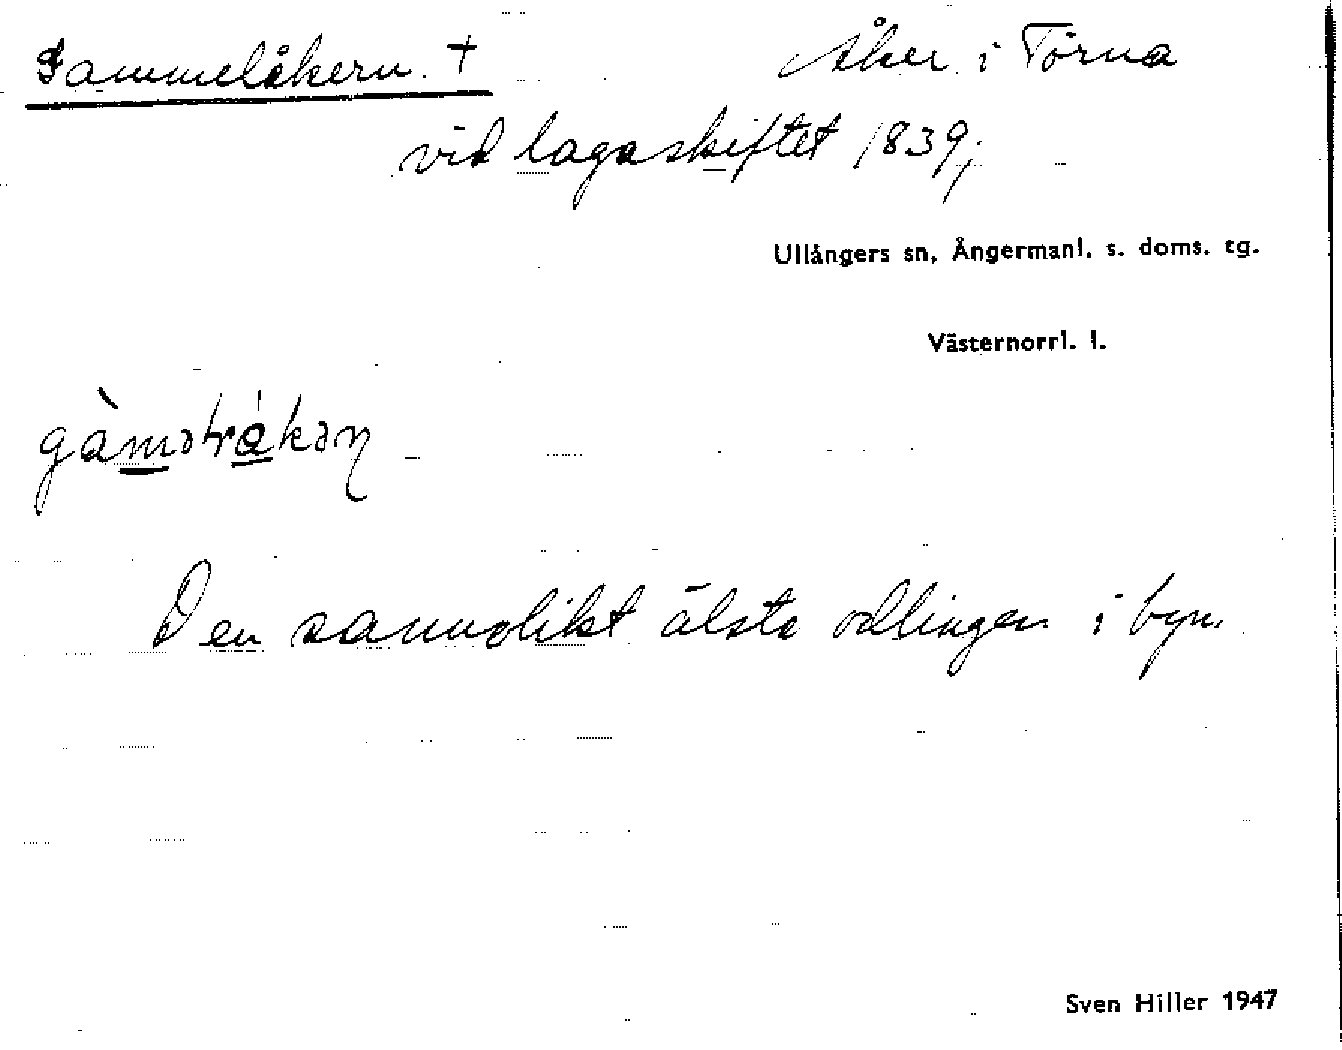 Gammelåkern. † Åker i Törna
vid lagaskiftet 1839;
Ullångers sn, Ångermanl. s. doms. tg.
Västernorrl. l.
Den sannolikt älsta odlingen i byn.
Sven Hiller 1947